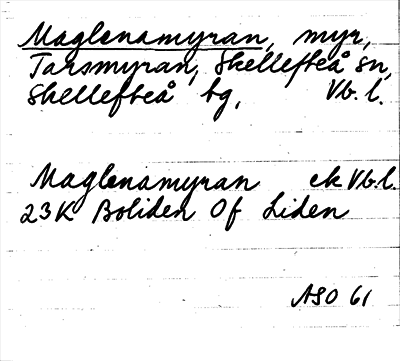 Maglenamyran, myr,
Tarsmyran, Skellefteå sn,
Skellefteå tg, Vb. l.
Maglenamyran ek Vb.l.
23K Boliden Of Liden
ASO 61